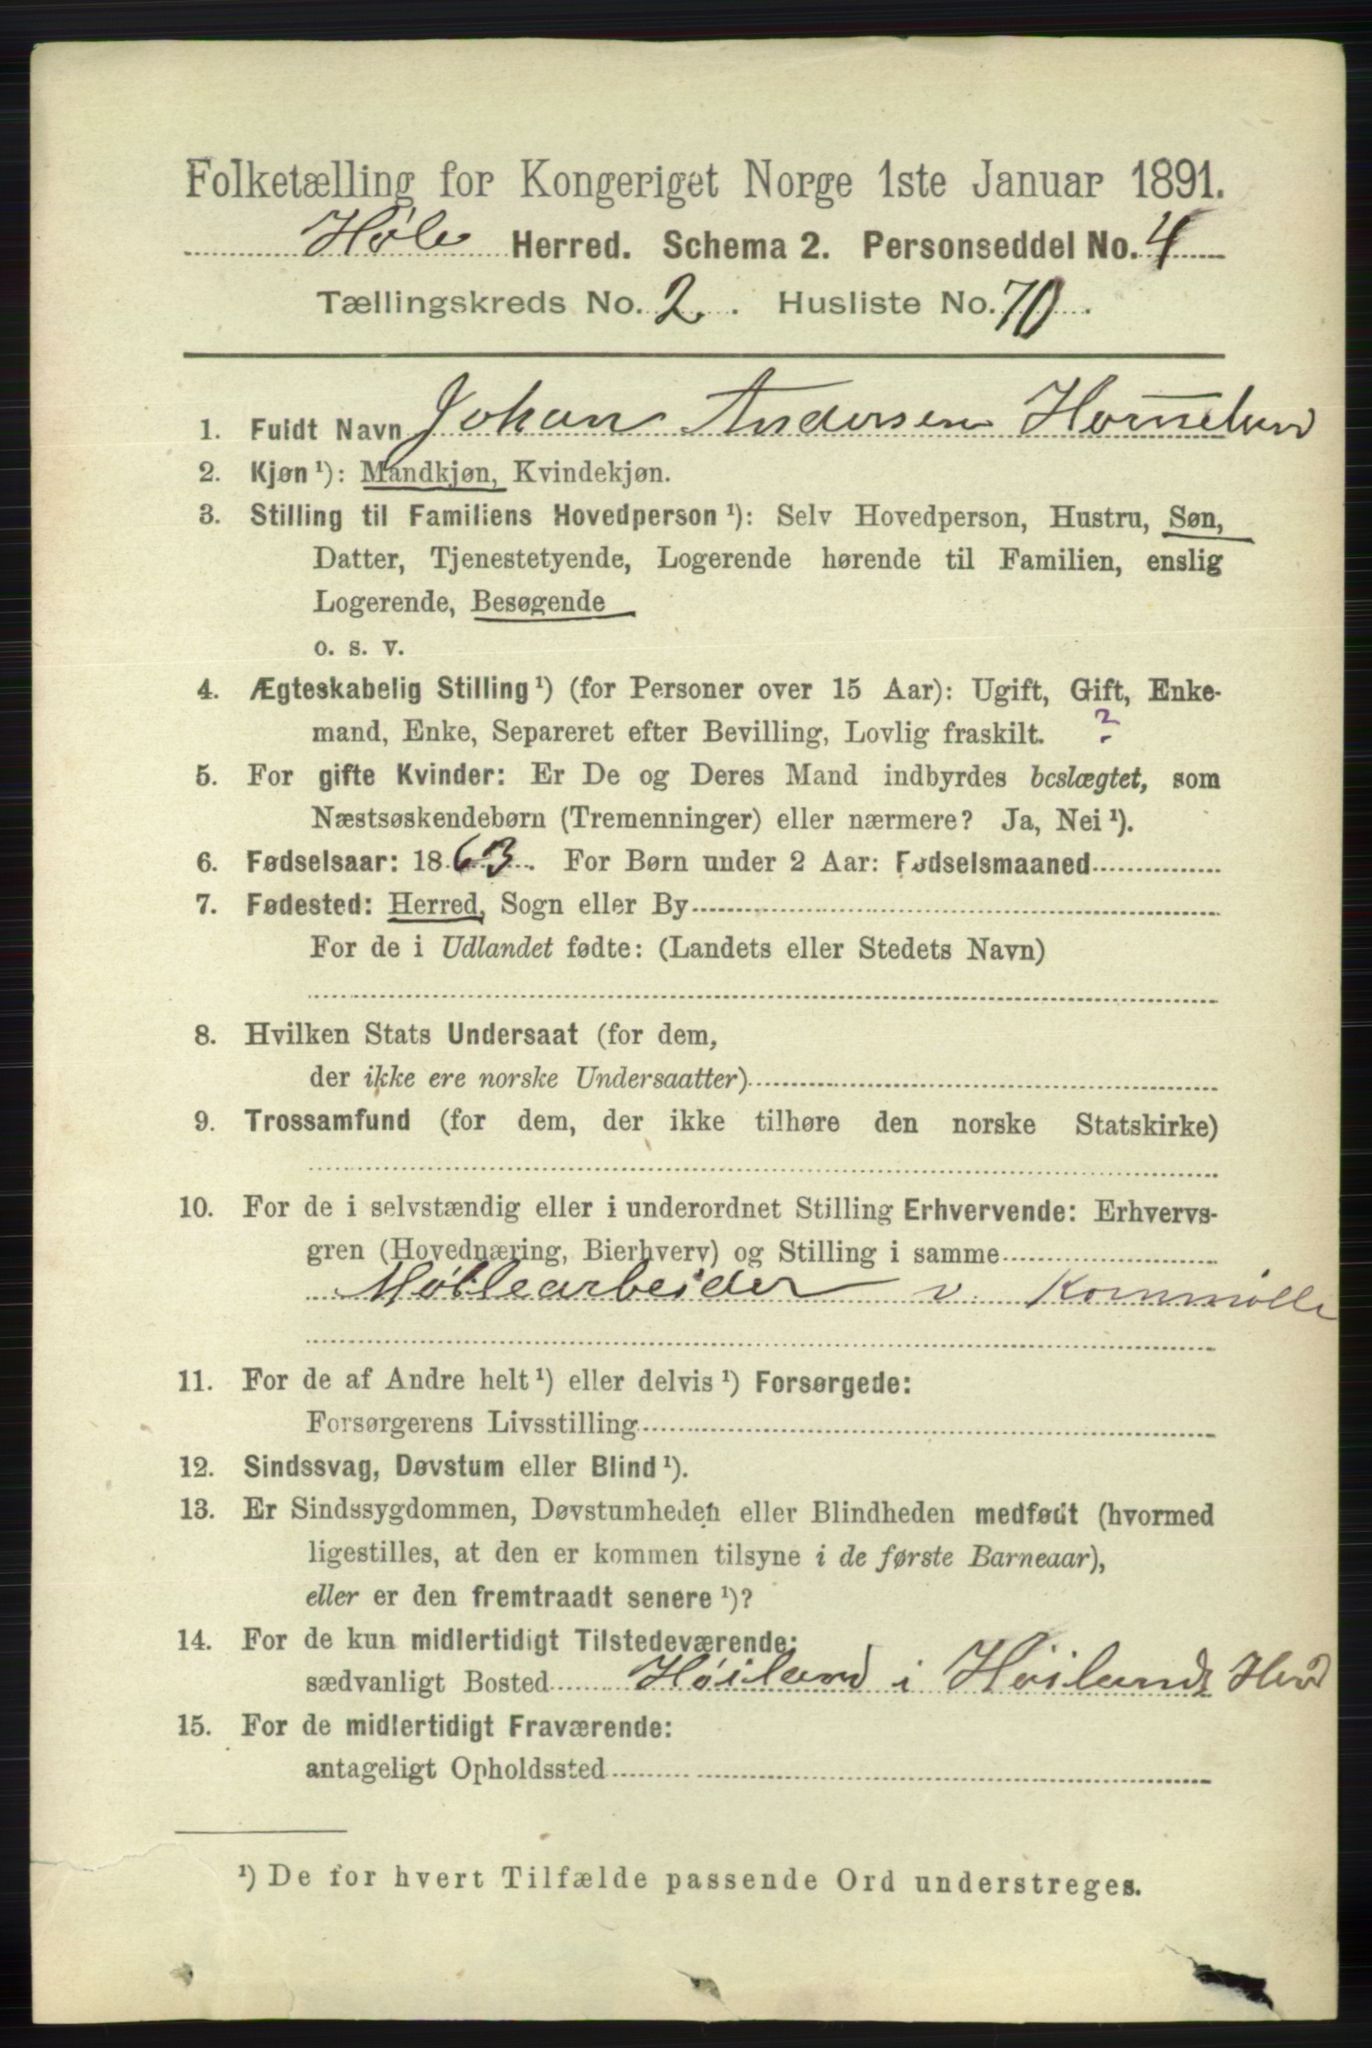 Folketælling for Kongeriget Norge 1ste Januar 1891.
Høle Herred. Schema 2. Personseddel No. 4
Tællingskreds No. 2. Husliste No. 70.
1. Fuldt Navn Johan Andersen Hommeland
2. Kjøn ¹): Mandkjøn, Kvindekjøn.
3. Stilling til Familiens Hovedperson ¹): Selv Hovedperson, Hustru, Søn,
Datter, Tjenestetyende, Logerende hørende til Familien, enslig
Logerende, Besøgende
o. s. v.
4. Ægteskabelig Stilling ¹) (for Personer over 15 Aar): Ugift, Gift, Enke-
mand, Enke, Separeret efter Bevilling, Lovlig fraskilt. ?
5. For gifte Kvinder: Er De og Deres Mand indbyrdes beslægtet, som
Næstsøskendebørn (Tremenninger) eller nærmere? Ja, Nei ¹).
6. Fødselsaar: 1863. For Børn under 2 Aar: Fødselsmaaned
7. Fødested: Herred, Sogn eller By
For de i Udlandet fødte: (Landets eller Stedets Navn)
8. Hvilken Stats Undersaat (for dem,
der ikke ere norske Undersaatter)
9. Trossamfund (for dem, der ikke tilhøre den norske Statskirke)
10. For de i selvstændig eller i underordnet Stilling Erhvervende: Erhvervs-
gren (Hovednæring, Bierhverv) og Stilling i samme
Møllearbeider v. Kornmølle
11. For de af Andre helt ¹) eller delvis ¹) Forsørgede:
Forsørgerens Livsstilling
12. Sindssvag, Døvstum eller Blind ¹).
13. Er Sindssygdommen, Døvstumheden eller Blindheden medfødt (hvormed
ligestilles, at den er kommen tilsyne i de første Barneaar),
eller er den fremtraadt senere ¹)?
14. For de kun midlertidigt Tilstedeværende:
sædvanligt Bosted Høiland i Høilands Herd
15. For de midlertidigt Fraværende:
antageligt Opholdssted
¹) De for hvert Tilfælde passende Ord understreges.